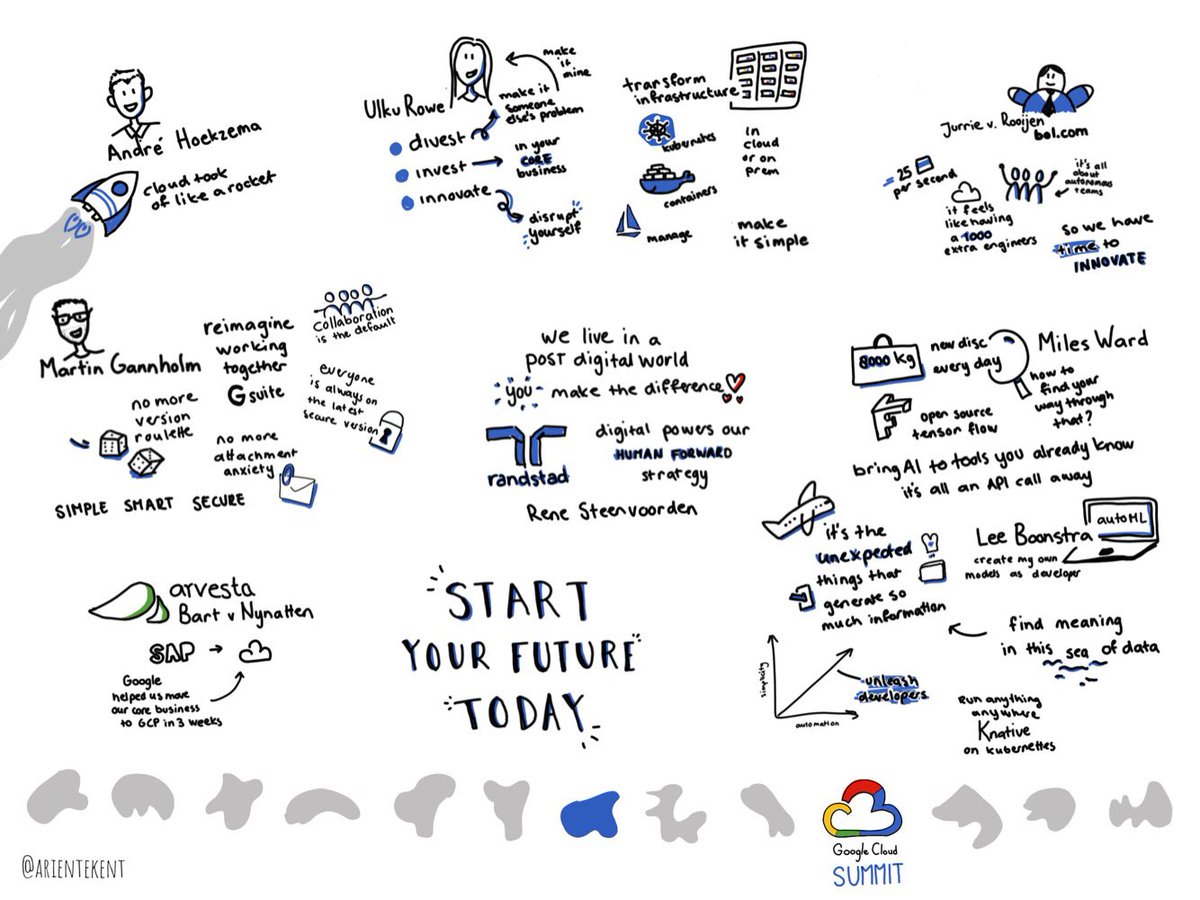 André Hoekzema
cloud took
of like a rocket
Ulku Rowe
make
it
mine
make it
someone
else's problem
divest
invest
in your
CORE
business
innovate
disrupt
yourself
transform
infrastructure
kubernetes
containers
manage
in
cloud
or on
prem
make
it simple
Jurrie v. Rooijen
bol.com
25
per second
it's all
about
autonomous
teams
it feels
like having
a 1000
extra engineers
so we have
time to
INNOVATE
Martin Gannholm
reimagine
working
together
G suite
collaboration
is the default
everyone
is always on
the latest
secure version
no more
version
roulette
no more
attachment
anxiety
SIMPLE SMART SECURE
we live in a
post digital world
you make the difference
randstad
digital powers our
HUMAN FORWARD
strategy
Rene Steenvoorden
8000 kg
new disc
every day
Miles Ward
how to
find your
way through
that?
open source
tensor flow
bring AI to tools you already know
it's all an API call away
it's the
unexpected
things that
generate so
much information
Lee Boonstra
autoML
create my own
models as developer
find meaning
in this sea of data
simplicity
automation
unleash
developers
Run anything
anywhere
Knative
on kubernettes
arvesta
Bart v Nynatten
SAP
Google
helped us move
our core business
to GCP in 3 weeks
START
YOUR FUTURE
TODAY
Google Cloud
SUMMIT
@ARIENTEKENT